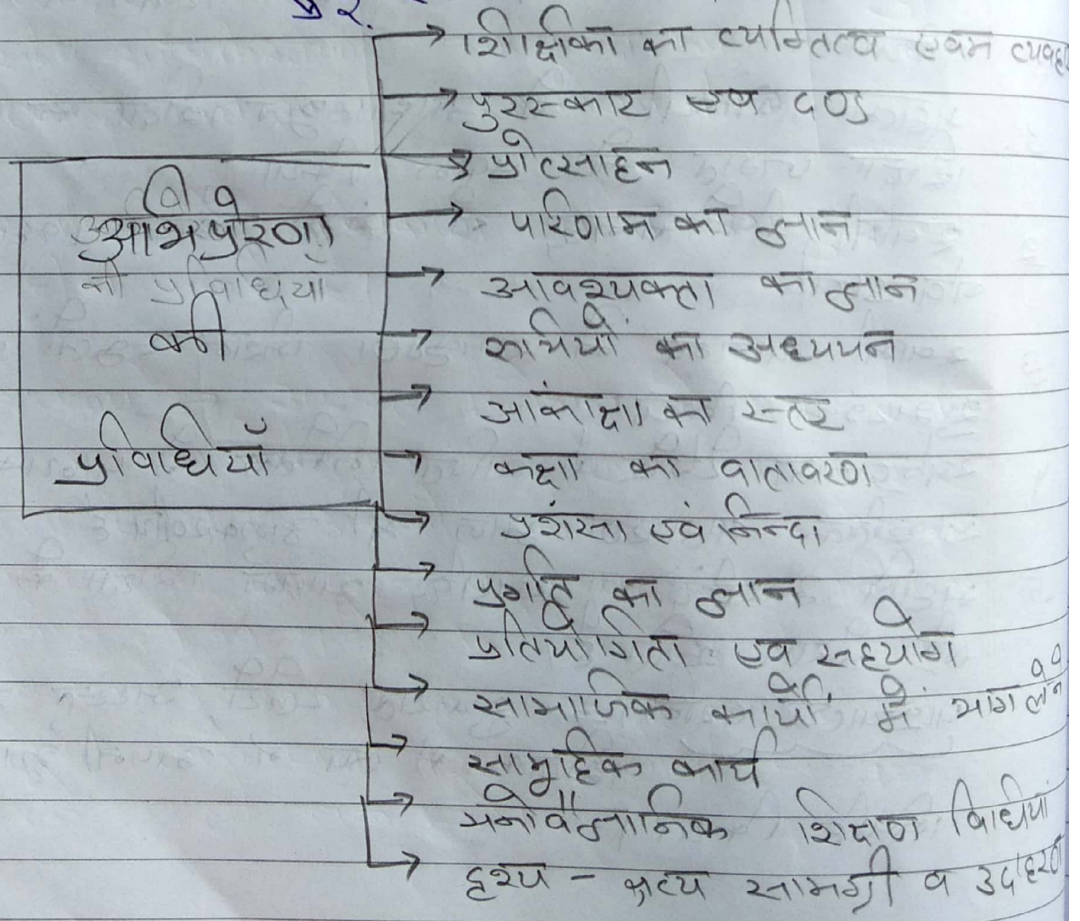 प्र २.
शिक्षिका का व्यक्तित्व एवम व्यवहा
पुरस्कार एवं दण्ड
प्रोत्साहन
परिणाम का ज्ञान
आवश्यक्ता का ज्ञान
रुचियों का अध्ययन
आकांक्षा का स्तर
कक्षा का वातावरण
प्रशंसा एवं निन्दा
प्रगति का ज्ञान
प्रतियोगिता एवं सहयोग
सामाजिक कार्यो में भाग लेने
सामुहिक कार्य
मनोवैज्ञानिक शिक्षण विधियां
दृश्य - श्रव्य सामग्री व उदाहरण
अभिप्रेरणा
की प्रविधिया
की
प्रविधियाँ